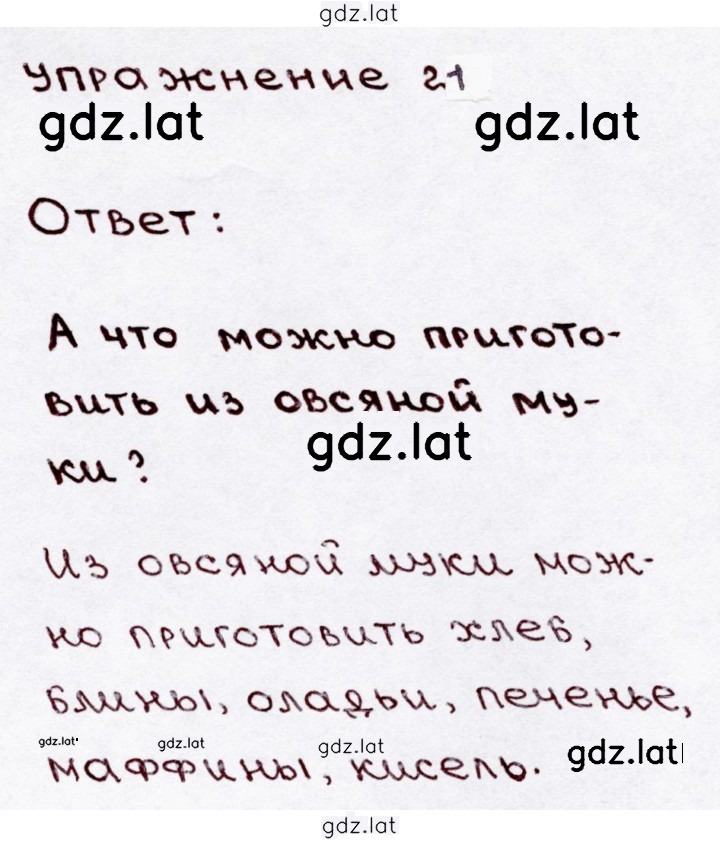 gdz.lat
Упражнение 21
gdz.lat gdz.lat
Ответ:
А что можно пригото-
вить из овсяной му-
gdz.lat
ки?
Из овсяной муки мож-
но приготовить хлеб,
блины, оладьи, печенье,
gdz.lat gdz.lat gdz.lat gdz.lat
маффины, кисель.
gdz.lat